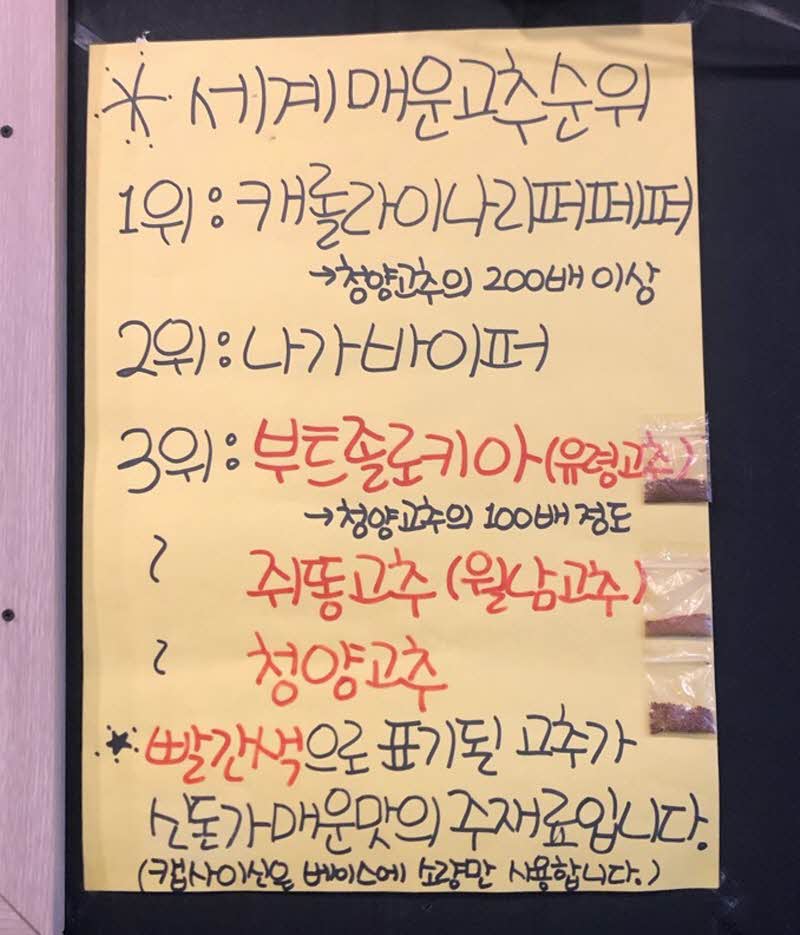 * 세계매운고추순위
1위: 캐롤라이나리퍼페퍼
→청양고추의 200배 이상
2위: 나가바이퍼
3위: 부트졸로키아(유령고추)
→청양고추의 100배 정도
~ 쥐똥고추 (월남고추)
~ 청양고추
★ 빨간색으로 표기된 고추가
신돈가매운맛의 주재료입니다.
(캡사이신은 베이스에 소량만 사용합니다.)